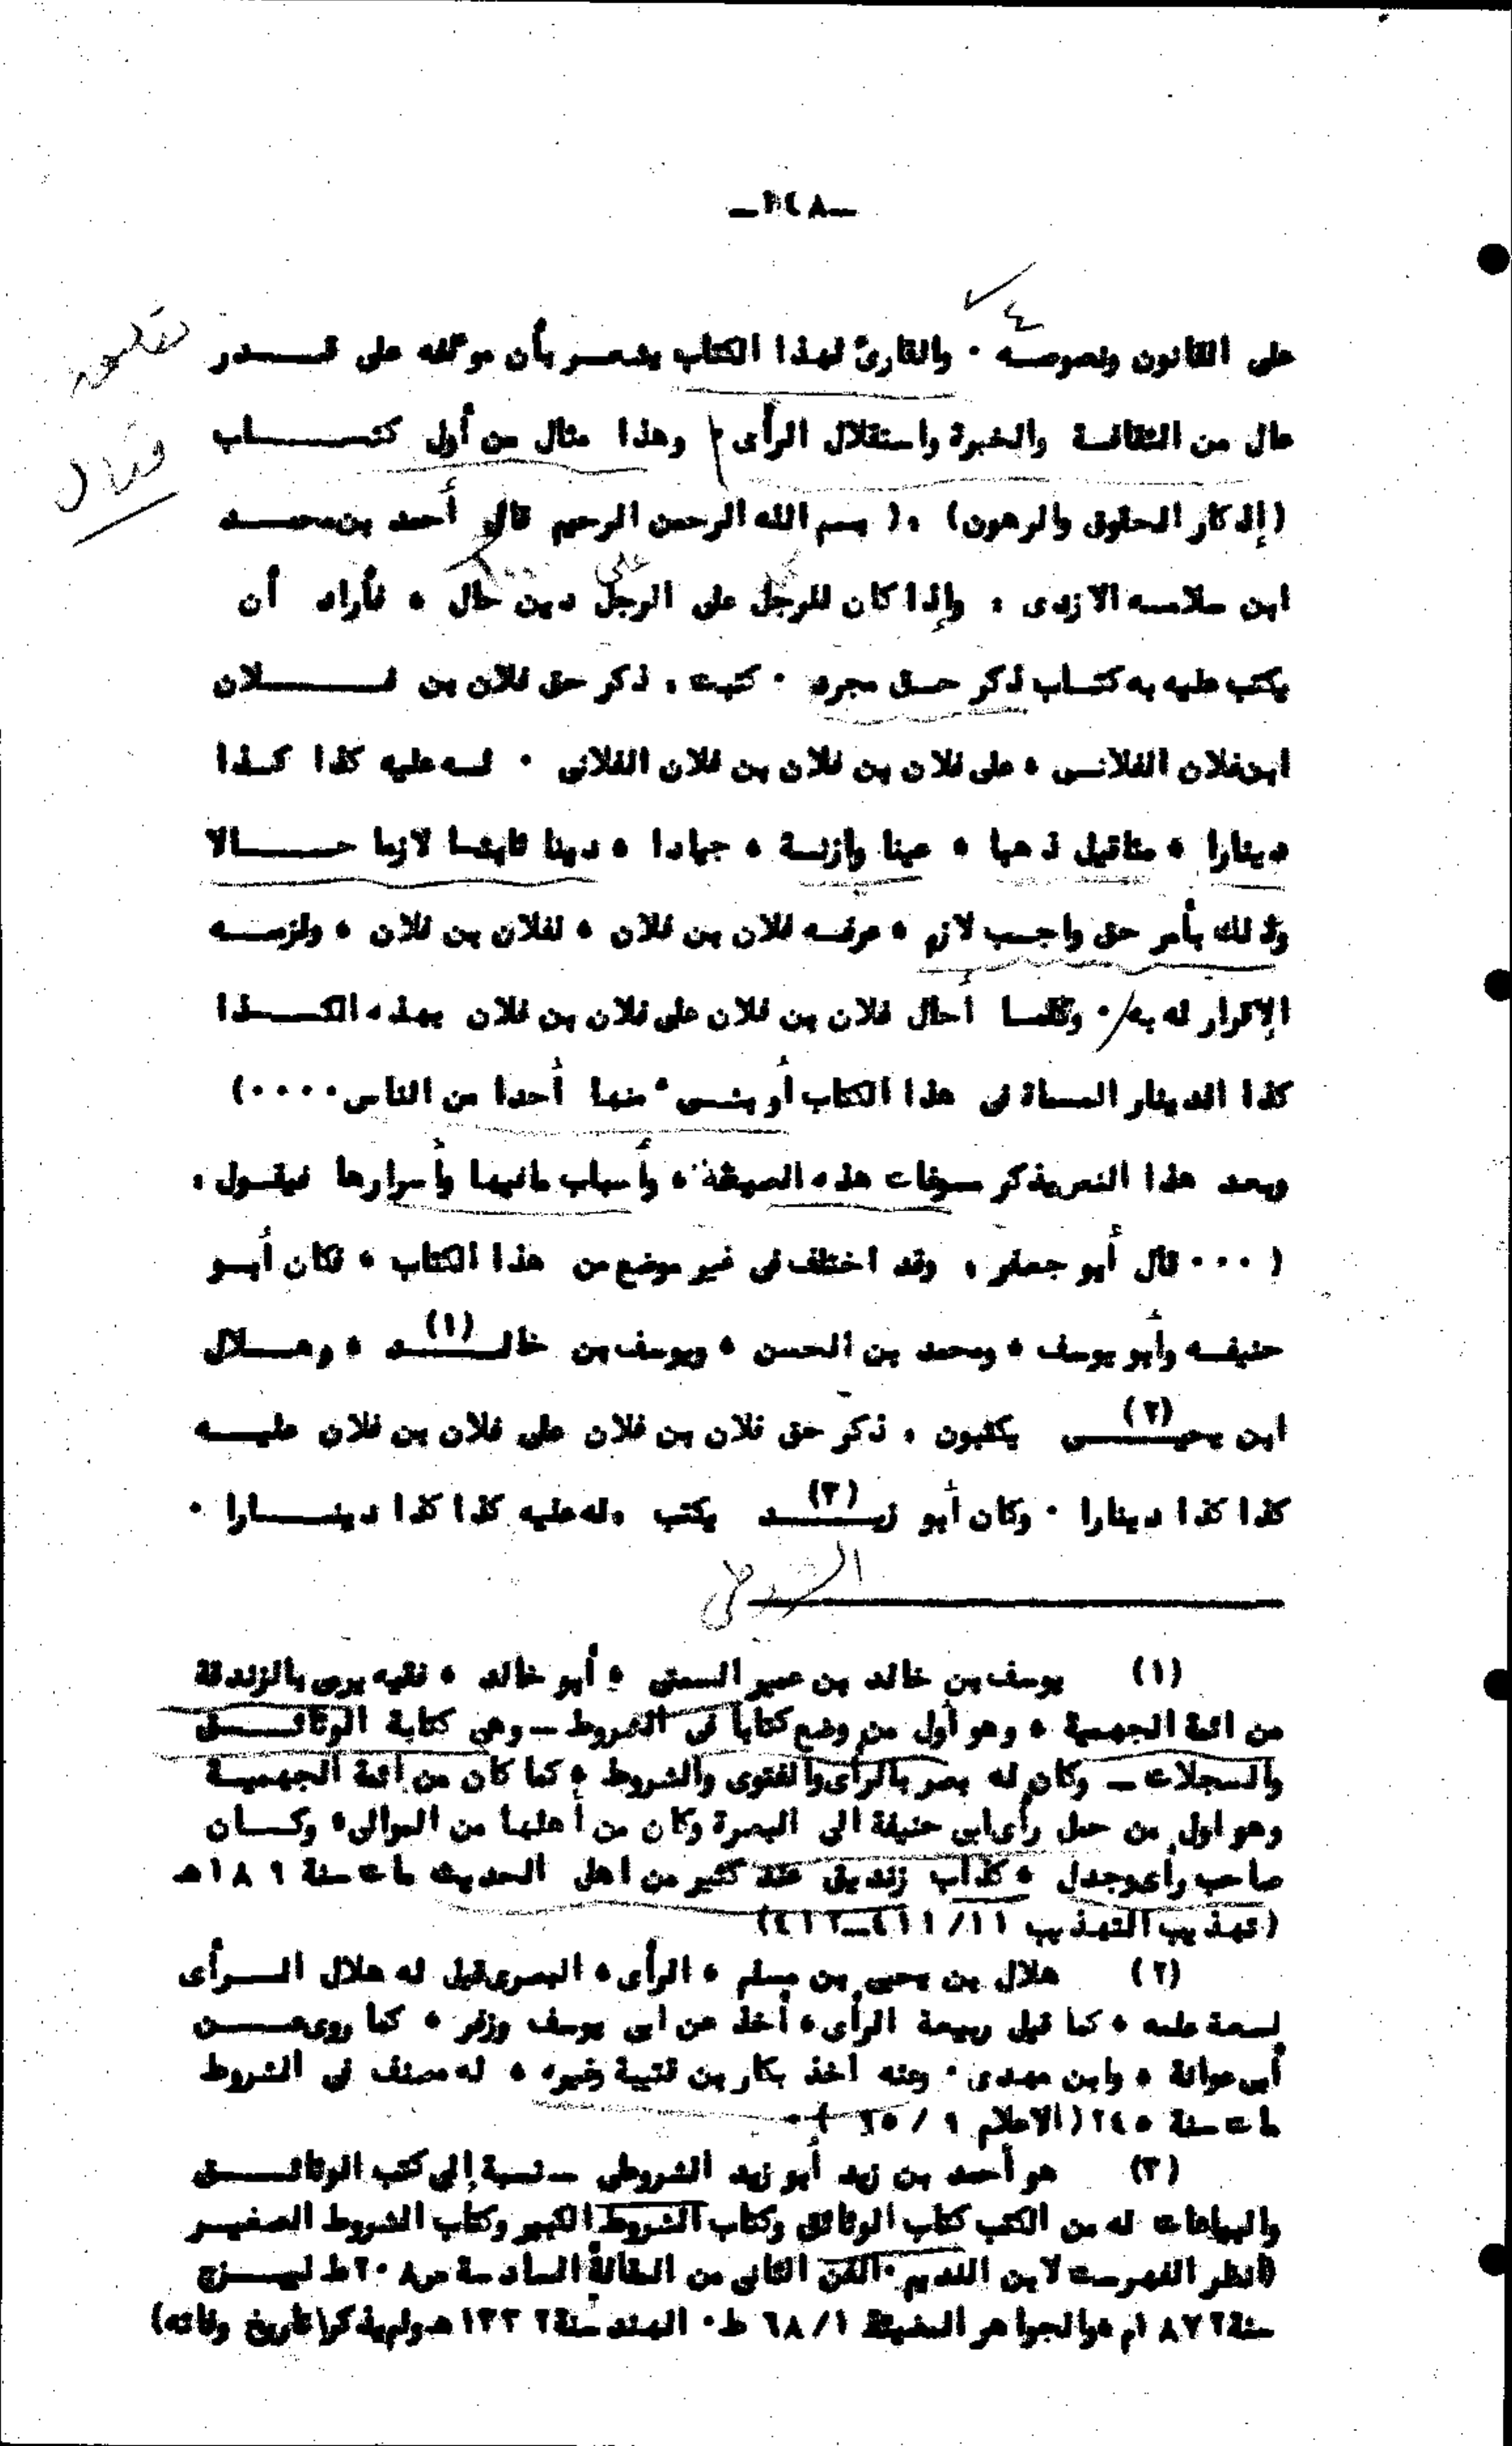 على القانون ونصوصه ٠ والقارئ لهذا الكتاب يشعر بأن مؤلفه على قدر
عال من الثقافة والخبرة واستقلال الرأى وهذا مثال من أول كتاب
(إذكار الحقوق والرهون) ،( بسم الله الرحمن الرحيم قال أحمد بن محمد
ابن سلامه الازدى ، وإذا كان للرجل على الرجل دين حال ، فأراد أن
يكتب عليه به كتاب ذكر حق مجرد ٠ كتبت ، ذكر حق فلان بن فلان
ابن فلان الفلانى ، على فلان بن فلان بن فلان الفلانى ٠ له عليه كذا كذا
دينارا ، مثاقيل ذهبا ، عينا وازنة ، جيادا ، دينا ثابتا لازما حالا
وذلك بأمر حق واجب لازم ، عرفه فلان بن فلان ، لفلان بن فلان ، ولزمه
الإقرار له به ٠ وكلما أحال فلان بن فلان على فلان بن فلان بهذه الكذا
كذا الدينار المسماة فى هذا الكتاب أو بشىء منها أحدا من الناس ٠٠٠٠)
وبعد هذا النص يذكر مسوغات هذه الصيغة ، وأسباب مافيها وأسرارها فيقول ،
( ٠٠٠ قال أبو جعفر ، وقد اختلف فى غير موضع من هذا الكتاب ، فكان أبو
حنيفه وأبو يوسف ، ومحمد بن الحسن ، ويوسف بن خالد (١) ، وهلال
ابن يحيى (٢) يكتبون ، ذكر حق فلان بن فلان على فلان بن فلان عليه
كذا كذا دينارا ٠ وكان أبو زيد (٣) يكتب ، له عليه كذا كذا دينارا ٠
الشروطى
(١) يوسف بن خالد بن عمير السمتى ، أبو خالد ، فقيه يرمى بالزندقة
من ائمة الجهمية ، وهو أول من وضع كتابا فى الشروط – وهى كتابة الوثائق
والسجلات – وكان له بصر بالرأى والفتوى والشروط ، كما كان من ائمة الجهمية
وهو اول من حمل رأى ابى حنيفة الى البصرة وكان من أهلها من الموالى ، وكان
صاحب رأى وجدل ، كذاب زنديق عند كثير من اهل الحديث مات سنة ١٨٩هـ
(تهذيب التهذيب ١١/ ٤١١–٤١٢)
(٢) هلال بن يحيى بن مسلم ، الرأى ، البصرى قيل له هلال الرأى
لسعة علمه ، كما قيل ربيعة الرأى ، أخذ عن ابى يوسف وزفر ، كما روى عن
أبى عوانة ، وابن مهدى ٠ وعنه اخذ بكار بن قتيبة وغيره ، له مصنف فى الشروط
مات سنة ٢٤٥ (الاعلام ٩ / ٦٥ ) ٠
(٣) هو أحمد بن زيد أبو زيد الشروطى – نسبة إلى كتب الوثائق
والبياعات له من الكتب كتاب الوثائق وكتاب الشروط الكبير وكتاب الشروط الصغير
(أنظر الفهرست لابن النديم ٠ الفن الثانى من المقالة السادسة ص ٢٠٨ ط ليبزج
سنة ١٨٧٢م ، والجواهر المضيئة ١/ ٦٨ ط ٠ الهند سنة ١٣٣٢ هـ ولم يذكرا تاريخ وفاته)